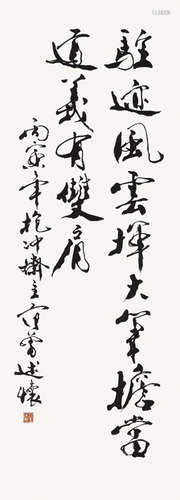 驅遣風雲揮大筆擔當
道義有雙肩
丙寅年抱冲齋主范曾述懷